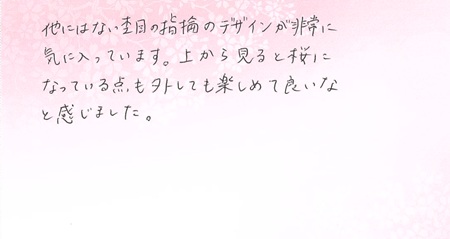 他にはない杢目の指輪のデザインが非常に
気に入っています。上から見ると桜に
なっている点も外しても楽しめて良いな
と感じました。